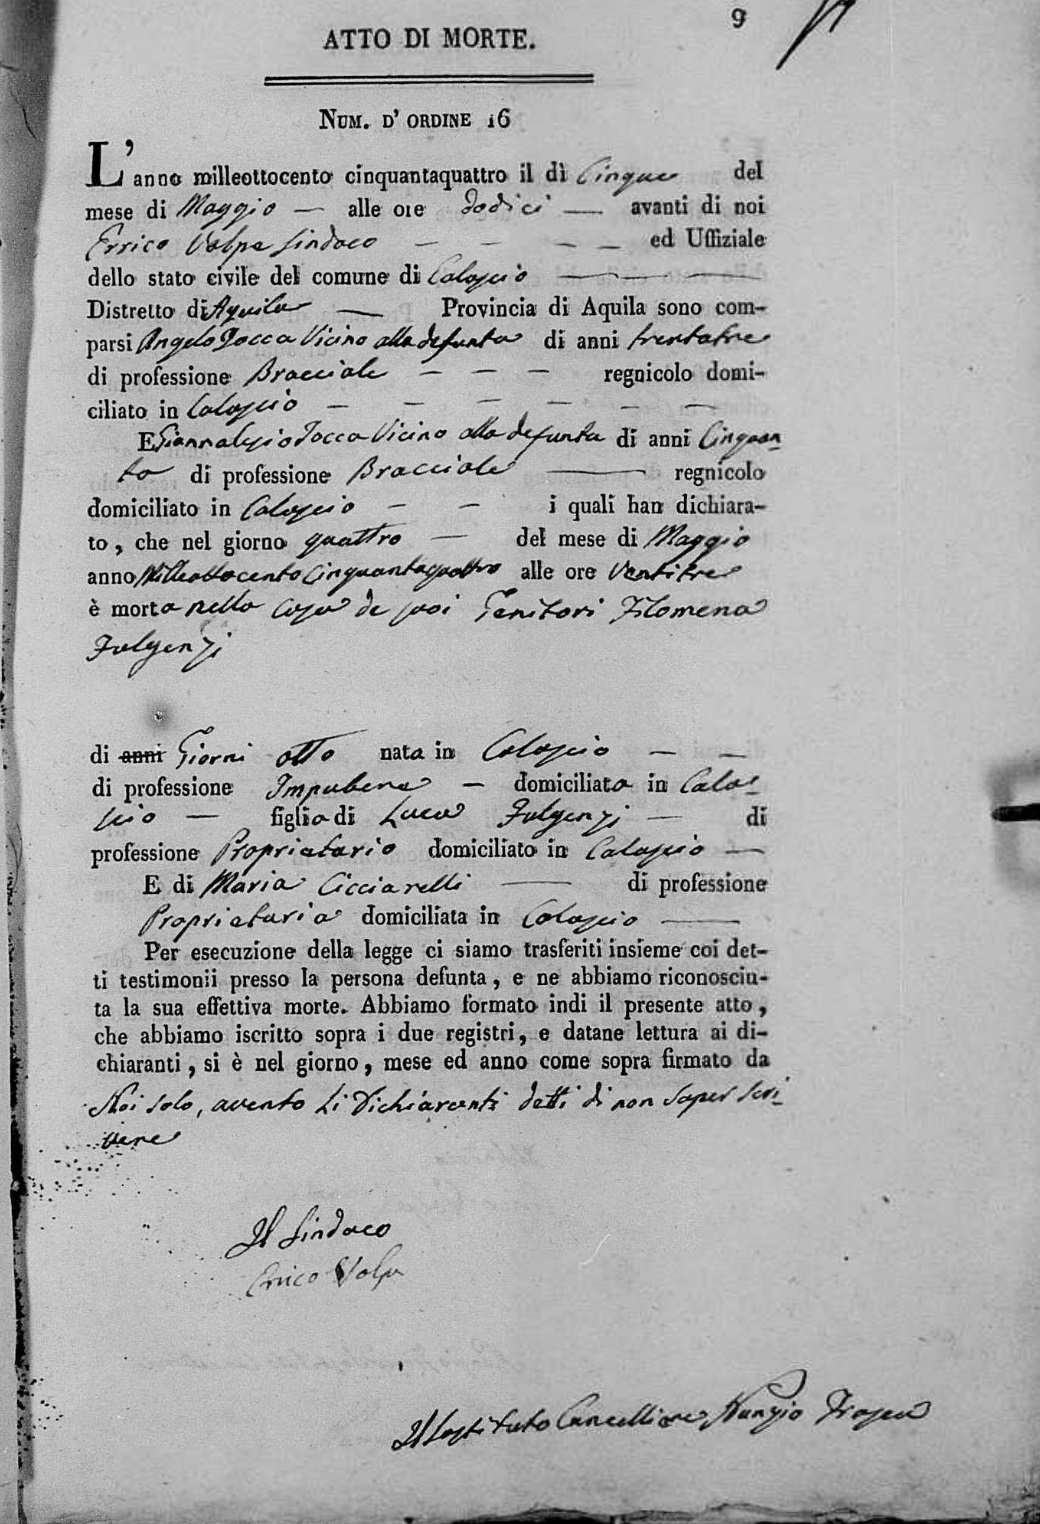 9
ATTO DI MORTE.
NUM. D' ORDINE 16
L'anno milleottocento cinquantaquattro il dì Cinque del
mese di Maggio — alle ore dodici — avanti di noi
Errico Volpe Sindaco — — — — ed Uffiziale
dello stato civile del comune di Calascio — — —
Distretto di Aquila — Provincia di Aquila sono com-
parsi Angelo Tocca Vicino alla defunta di anni trentatre
di professione Bracciale — — — regnicolo domi-
ciliato in Calascio — — — — — —
E Giannalesio Tocca Vicino alla defunta di anni Cinquan-
ta di professione Bracciale — regnicolo
domiciliato in Calascio — — i quali han dichiara-
to, che nel giorno quattro — del mese di Maggio
anno Milleottocento Cinquantaquattro alle ore Ventitre
è morta nella casa de suoi Genitori Filomena
Fulgenzj
di anni Giorni otto nata in Calascio — —
di professione Impubere — domiciliata in Cala-
scio — figlia di Luca Fulgenzj — di
professione Proprietario domiciliato in Calascio —
E di Maria Cicciarelli — di professione
Proprietaria domiciliata in Calascio —
Per esecuzione della legge ci siamo trasferiti insieme coi det-
ti testimonii presso la persona defunta, e ne abbiamo riconosciu-
ta la sua effettiva morte. Abbiamo formato indi il presente atto,
che abbiamo iscritto sopra i due registri, e datane lettura ai di-
chiaranti, si è nel giorno, mese ed anno come sopra firmato da
Noi solo, avento li Dichiaranti detti di non saper scri-
vere
Il Sindaco
Errico Volpe
Il Sostituto Cancelliere Nunzio Frasca